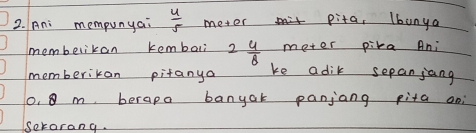 2. Ani mempunyai 4/5 meter pita, Ibunya
membelikan kembali 2 4/8 meter pita Ani
memberikan pitanya ke adik sepanjang
0,8 m. berapa banyak panjang pita ani
sekarang.